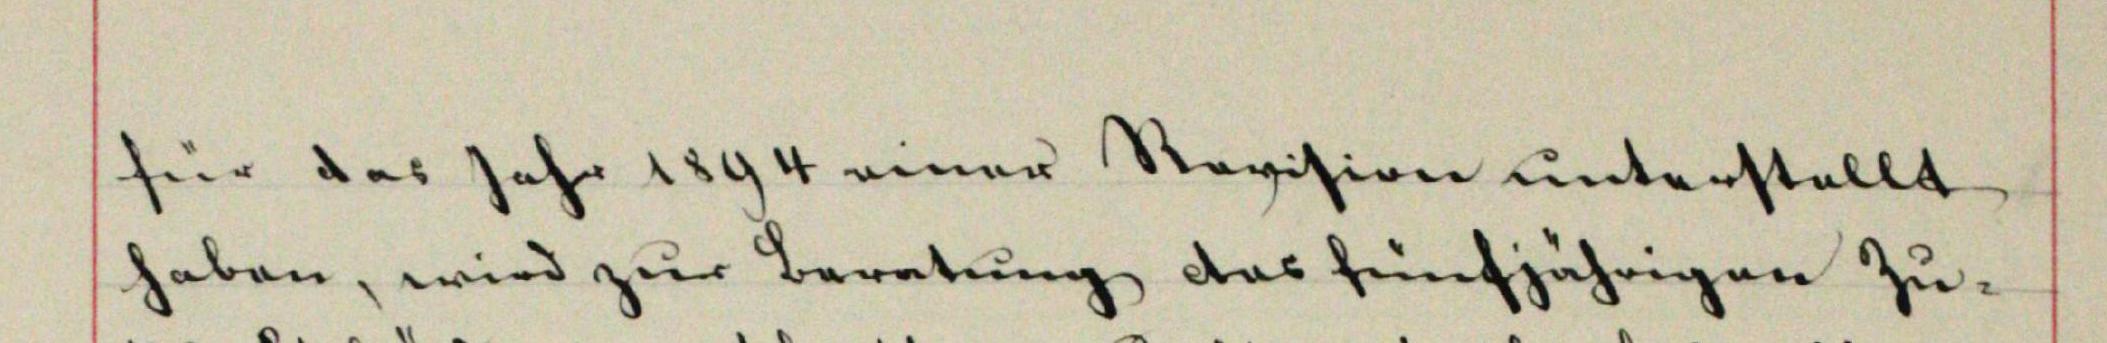 für das Jahr 1894 einer Revision unterstellt
haben, wird zur Beratung des fünfjährigen Zu-